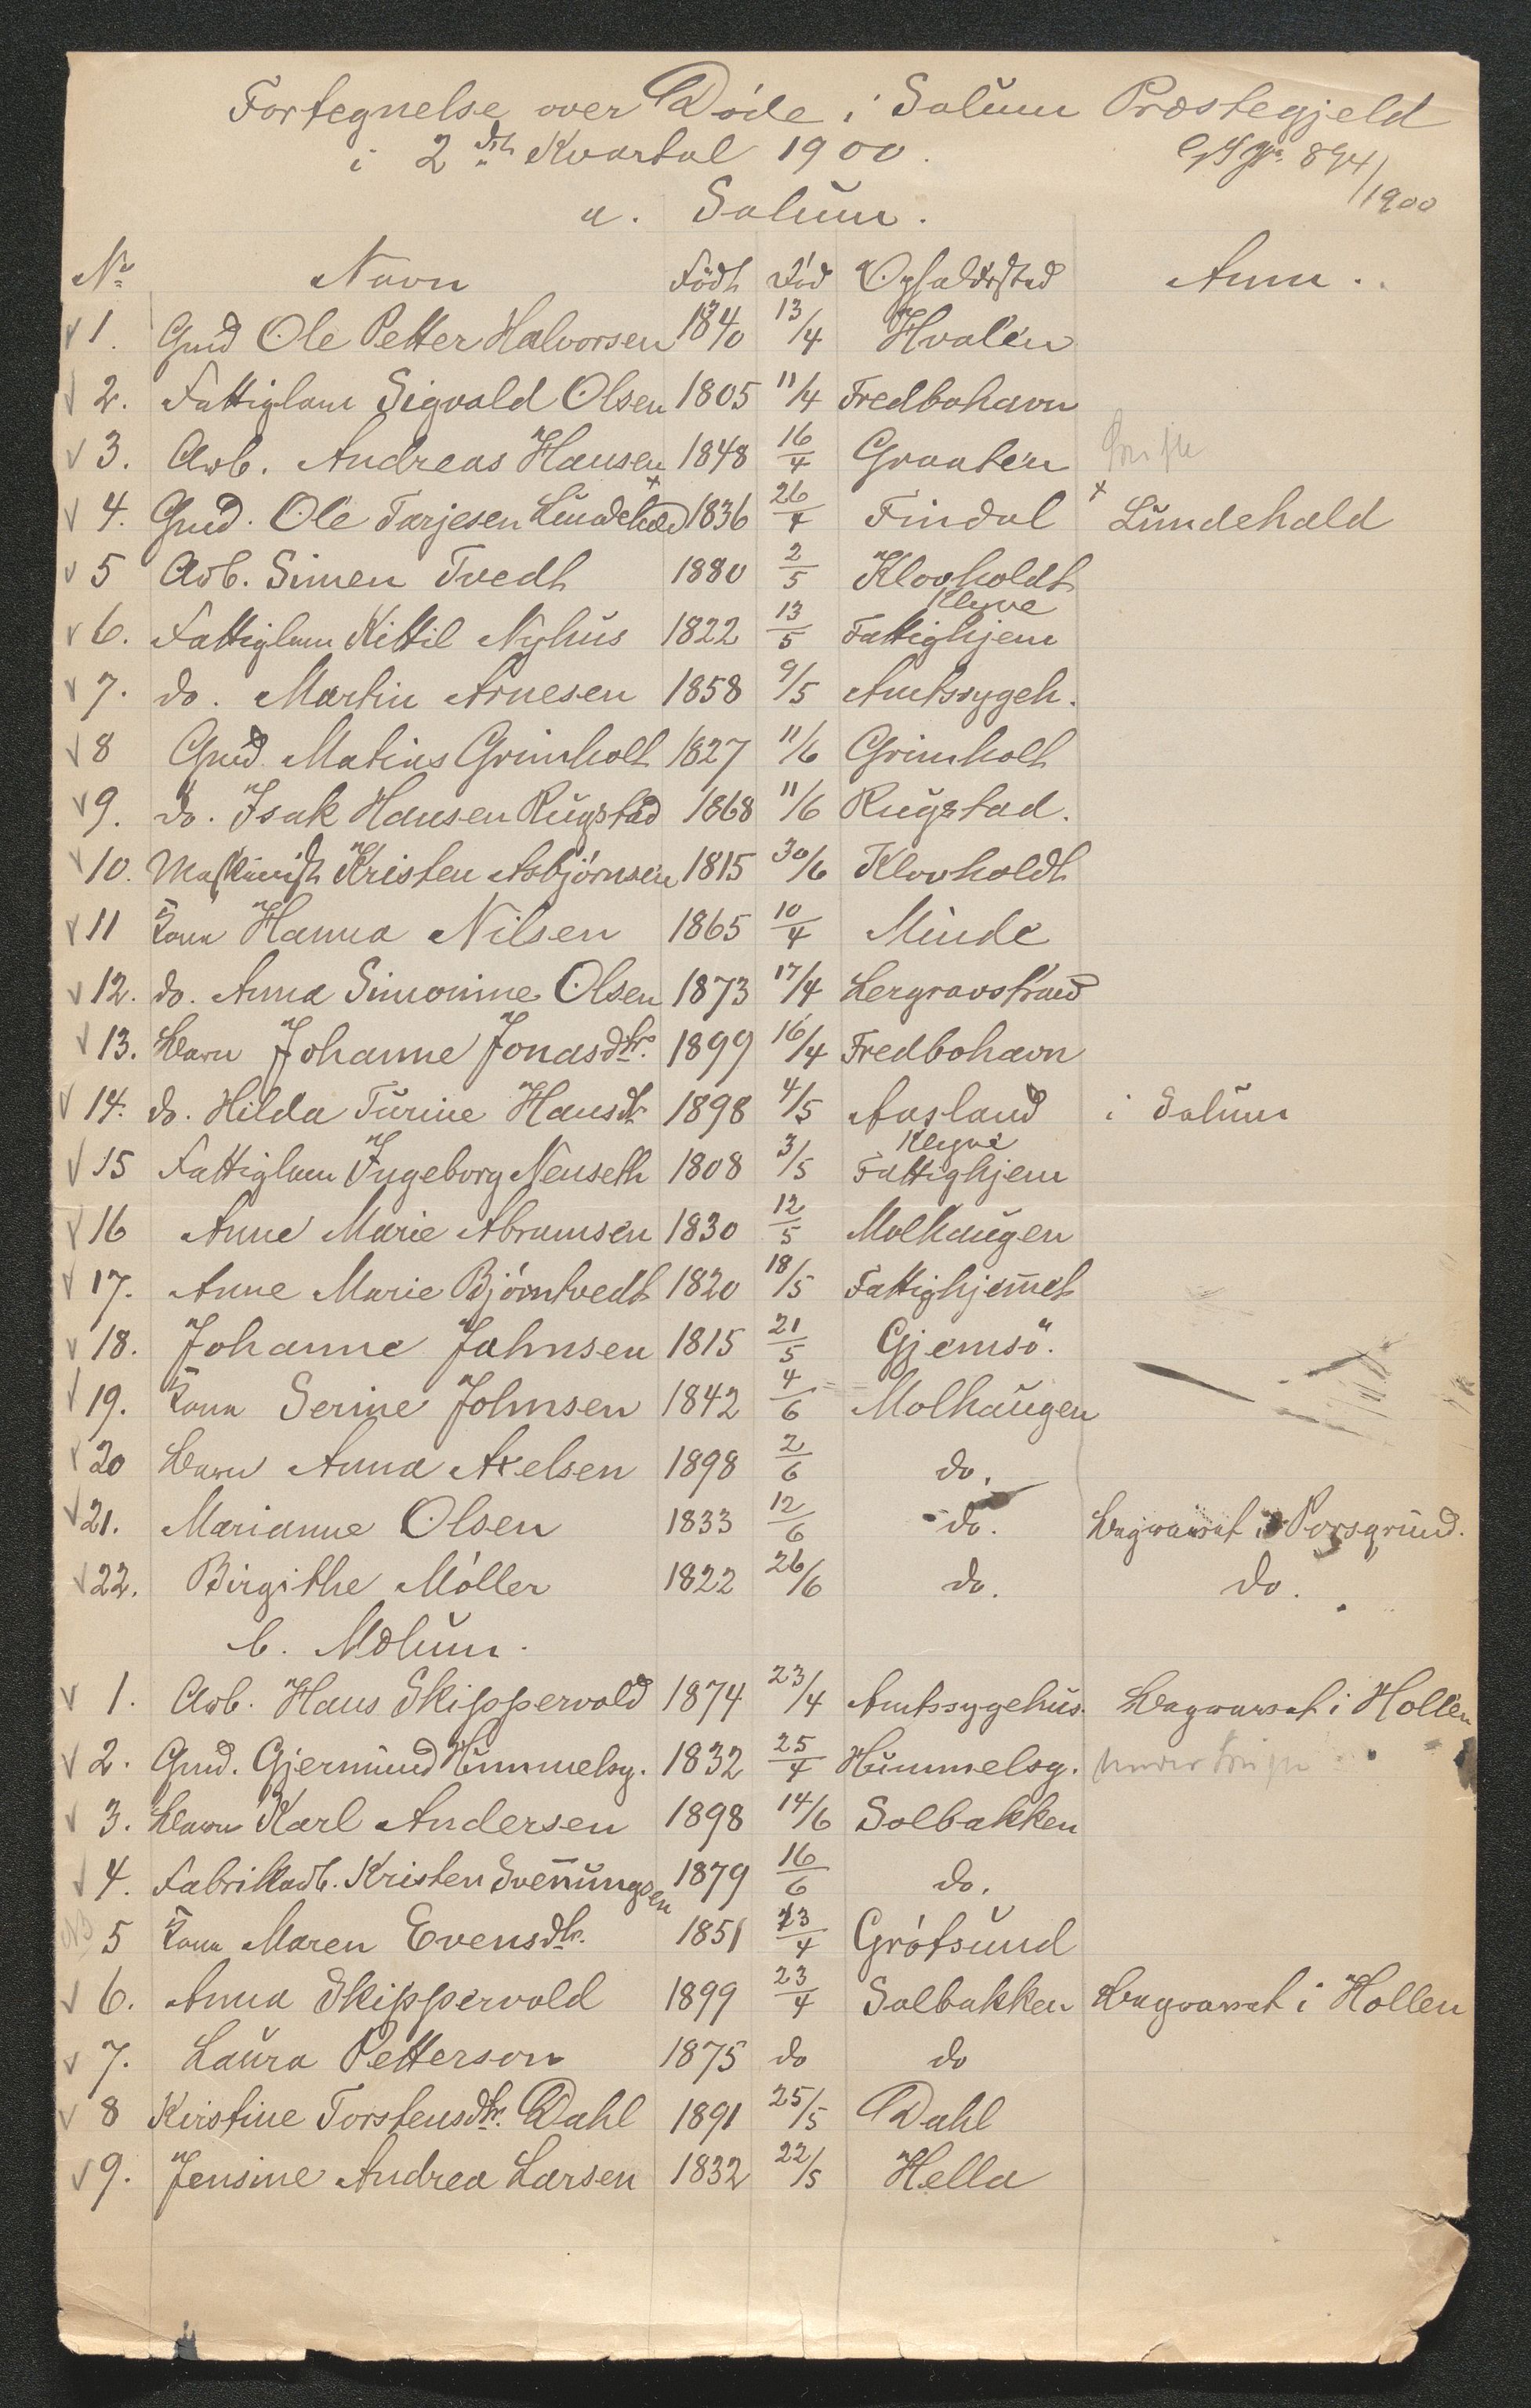 Fortegnelse over Døde i Solum Præstegjeld
i 2det Kvartal 1900.
894/1900
a. Solum.
No Navn Født Død Opholdssted Anm.
1. Gmd Ole Petter Halvorsen 1840 13/4 Hvalen
2. Fattiglem Sigvald Olsen 1805 11/4 Fredbohavn
3. Arb. Andreas Hansen 1848 16/4 Graaten
4. Gmd. Ole Tarjesen Lundehald 1836 26/4 Findal Lundehald
5 Arb. Simen Tvedt 1880 2/5 Klovholdt
6. Fattiglem Kittil Nyhus 1822 13/5 Klyve Fattighjem
7. do. Martin Arnesen 1858 9/5 Amtssygeh.
8 Gmd Matias Grimholt 1827 11/6 Grimholt
9. do. Isak Hansen Rugstad 1868 11/6 Rugstad.
10. Maskinist Kristen Asbjørnsen 1815 30/6 Klovholdt
11 Kone Hanna Nilsen 1865 10/4 Minde
12. do. Anna Simonine Olsen 1873 17/4 Lergravstrand
13. Barn Johanne Jonasdtr. 1899 16/4 Fredbohavn
14. do. Hilda Turine Hansdtr 1898 4/5 Aasland i Solum
15 Fattiglem Ingeborg Nenseth 1808 3/5 Klyve Fattighjem
16 Anne Marie Abramsen 1830 12/5 Molhaugen
17. Anne Marie Bjørntvedt 1820 18/5 Fattighjem̅et
18. Johanne Jahnsen 1815 21/5 Gjemsö.
19. Kone Serine Johnsen 1842 4/6 Molhaugen
20 Barn Anna Axelsen 1898 2/6 do.
21. Marianne Olsen 1833 12/6 do. Begravet i Porsgrund.
22. Birgithe Møller 1822 26/6 do. do.
b. Mælum.
1. Arb. Hans Skippervold 1874 23/4 Amtssygehus. Begravet i Hollen
2. Gmd. Gjermund Hummelsg. 1832 25/4 Hummelsg.
3. Barn Karl Andersen 1898 14/6 Solbakken
4. Fabrikarb. Kristen Sven̅ungsen 1879 16/6 do.
5 Kone Maren Evensdtr. 1851 23/4 Grøtsund
6. Anna Skippervold 1899 23/4 Solbakken Begravet i Hollen
7. Laura Petterson 1875 do do
8 Kirstine Torstensdtr. Dahl 1891 25/5 Dahl
9. Jensine Andrea Larsen 1832 22/5 Hella